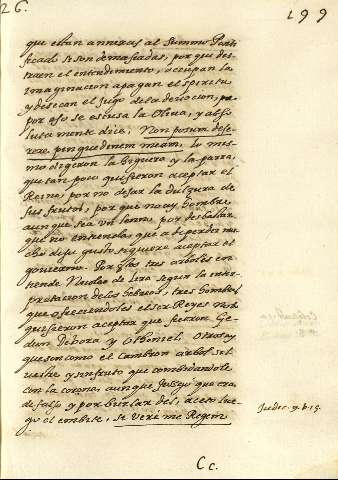 26.
199
que estan annexas al summo Ponti
ficado si son demasiadas, por que dis
traen el entendimiento, occupan la
imaginacion apagan el spiritu
y desecan el jugo de la devocion, 
por esso se escusa la Oliva, y abso
lutamente dice, Non possum dese
rere pinguedinem meam. Lo mes
mo digeron la Higuera y la parra,
que tan poco quisieron aceptar el
Reino, por no dejar la dulzura de
sus frutos, por que no ay hombre
aunque sea un leño, por desbastar
que no entienda, que a de perder mu
cho de su gusto si quiere aceptar el
govierno. Por estos tres arboles en
tiende Nicolao de Lira segun la inter
pretacion de los Hebreos, tres hombres
que ofreciendoles el ser Reyes no
quisieron aceptar que fueron Ge
deon Debora y Othoniel. Otros ay
que son como el Cambron arbol sil
vestre, y sin fruto que combidandole
con la corona, aunque que era
de falso y por burlar del, aceto lue
go el embite, si vere me Regem
Judic. 9. v. 15.
Cc.